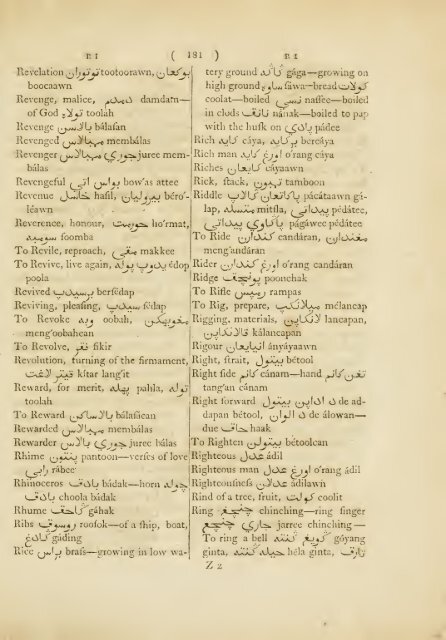 R I ( 181 ) R I
Revelation توتوران tootoorawn, بوكعان
boocaawn
Revenge, malice, دمدم damdam—
of God توله toolah
Revenge بالاسن bálasan
Revenged ممبالاس membálas
Revenger جوري ممبالاس juree mem-
bálas
Revengeful بواس اتي bow'as attee
Revenue حاصل hasil, بيروليان béro'-
léawn
Reverence, honour, حورمت ho'rmat,
سومبه soomba
To Revile, reproach, مقي makkee
To Revive, live again, يدوپ پوله édop
poola
Revived برسيدپ bersédap
Reviving, pleasing, سيدپ sédap
To Revoke وبه oobah,
meng'oobahean
To Revolve, فكر fikir
Revolution, turning of the firmament,
kítar lang'it
Reward, for merit, پهله pahla, توله
toolah
To Reward بالاساكن balasácan
Rewarded ممبالاس membálas
Rewarder جوري بالاس juree bálas
Rhime پنتون pantoon—verses of love
رابي rábee
Rhinoceros بادق bádak—horn چوله
بادق choola bádak
Rhume گاحق gáhak
Ribs روسوق roosok—of a ship, boat,
گادڠ gáding
Rice براس brass—growing in low wa-
tery ground گاگه gága—growing on
high ground ساوه sáwa—bread كولت
coolat—boiled نسي nassee—boiled
in clouds نانق nának—boiled to pap
with the husk on پادي pádee
Rich كاي cáya, بركاي bercáya
Rich man اورڠ كاي o'rang cáya
Riches كايعان cáyaawn
Rick, stack, تمبون tamboon
Riddle pácataawn gá-
lap, متسله mitsla, پيداتي pédátee,
págáwee pédátee
To Ride كنداران candáran, مڠنداران
meng'andáran
Rider اورڠ كنداران o'rang candáran
Ridge پونچق poonchak
To Rifle رمپس rampas
To Rig, prepare, ميلانكپ mélancap
Rigging, materials, لانكاپن lancapan,
kálancapan
Rigour انيايعان ányáyaawn
Right, strait, بيتول bétool
Right side كانم cánam—hand تاڠن كانم
tang'an cánam
Right forward de ad-
dapan bétool, د الوان de álowan—
due حاق haak
To Righten بيتولن bétoolcan
Righteous عادل ádil
Righteous man اورڠ عادل o'rang ádil
Righteousness عادلن ádilawn
Rind of a tree, fruit, كولت coolit
Ring چنچيڠ chinching—ring finger
جاري چنچيڠ jarree chinching—
To ring a bell گويڠ گنته góyang
ginta, حيله گنته héla ginta,
Z 2